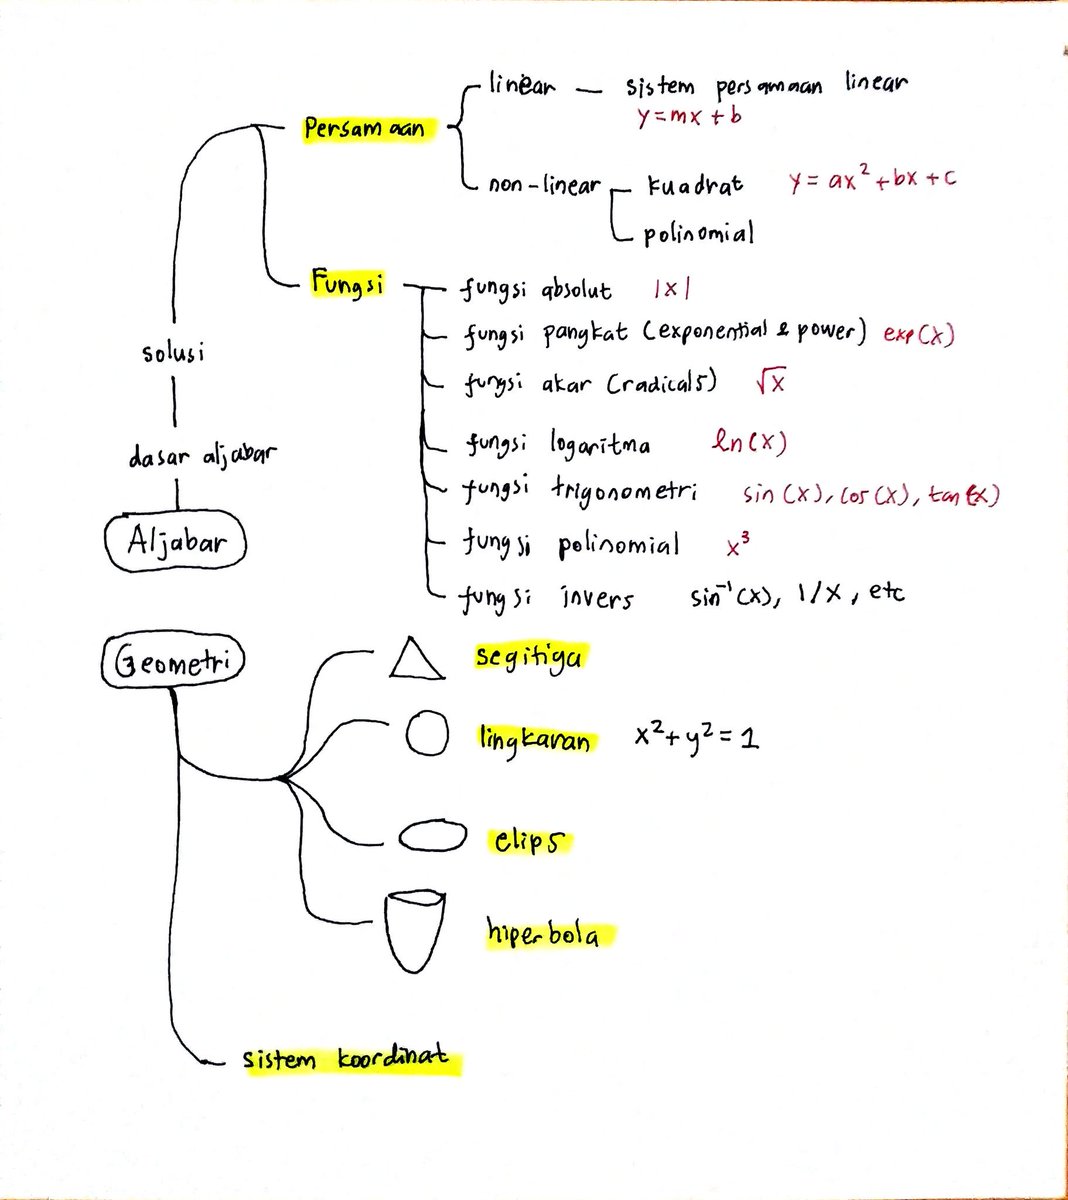 linear — sistem persamaan linear
y=mx+b
Persamaan
non-linear kuadrat y= ax²+bx+c
polinomial
Fungsi
fungsi absolut |x|
fungsi pangkat (exponential & power) exp(x)
fungsi akar (radicals) √x
fungsi logaritma ln(x)
fungsi trigonometri sin(x), cos(x), tan(x)
fungsi polinomial x³
fungsi invers sin⁻¹(x), 1/x, etc
solusi
dasar aljabar
Aljabar
Geometri
segitiga
lingkaran x²+y²=1
elips
hiperbola
sistem koordinat